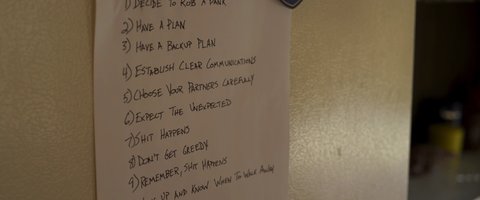 1) DECIDE TO ROB A BANK
2) HAVE A PLAN
3) HAVE A BACKUP PLAN
4) ESTABLISH CLEAR COMMUNICATIONS
5) CHOOSE YOUR PARTNERS CAREFULLY
6) EXPECT THE UNEXPECTED
7) SHIT HAPPENS
8) DON'T GET GREEDY
9) REMEMBER, SHIT HAPPENS
UP AND KNOW WHEN TO WALK AWAY